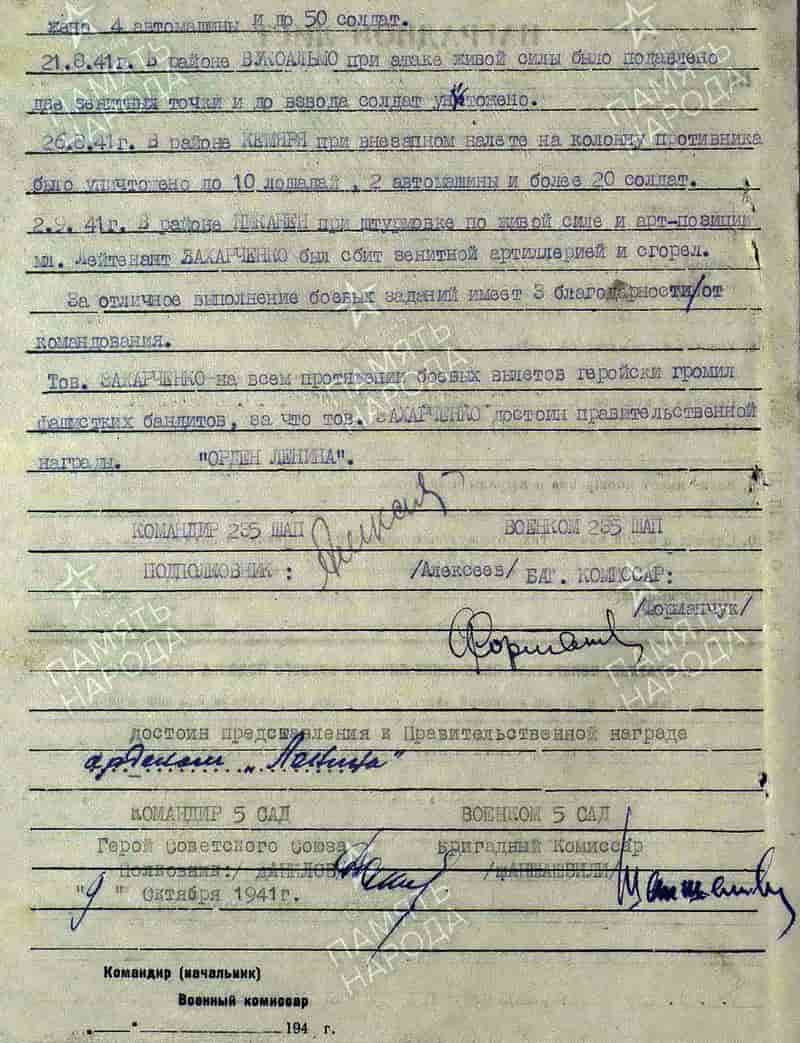 жено 4 автомашины и до 50 солдат.
21.8.41г. В районе ВУКОАЛЬМО при атаке живой силы было подавлено
две зенитных точки и до взвода солдат уничтожено.
26.8.41г. В районе КЕМЯРЯ при внезапном налете на колонну противника
было уничтожено до 10 лошадей, 2 автомашины и более 20 солдат.
2.9. 41г. В районе ПИКАНЕН при штурмовке по живой силе и арт-позиции
мл. Лейтенант ЗАХАРЧЕНКО был сбит зенитной артиллерией и сгорел.
За отличное выполнение боевых заданий имеет 3 благодарности/от
командования.
Тов. ЗАХАРЧЕНКО на всем протяжении боевых вылетов геройски громил
фашистких бандитов, за что тов. ЗАХАРЧЕНКО достоин правительственной
награды. "ОРДЕН ЛЕНИНА".
КОМАНДИР 235 ШАП ВОЕНКОМ 235 ШАП
ПОДПОЛКОВНИК : /Алексеев/ БАТ. КОМИССАР:
/Форманчук/
достоин представления к Правительственной награде
орденом „Ленина"
КОМАНДИР 5 САД ВОЕНКОМ 5 САД
Герой Советского Союза Бригадный Комиссар
Полковник:/ ДАНИЛОВ
"9" Октября 1941г.
Командир (начальник)
Военный комиссар
„ — " 194 г.
ПАМЯТЬ НАРОДА